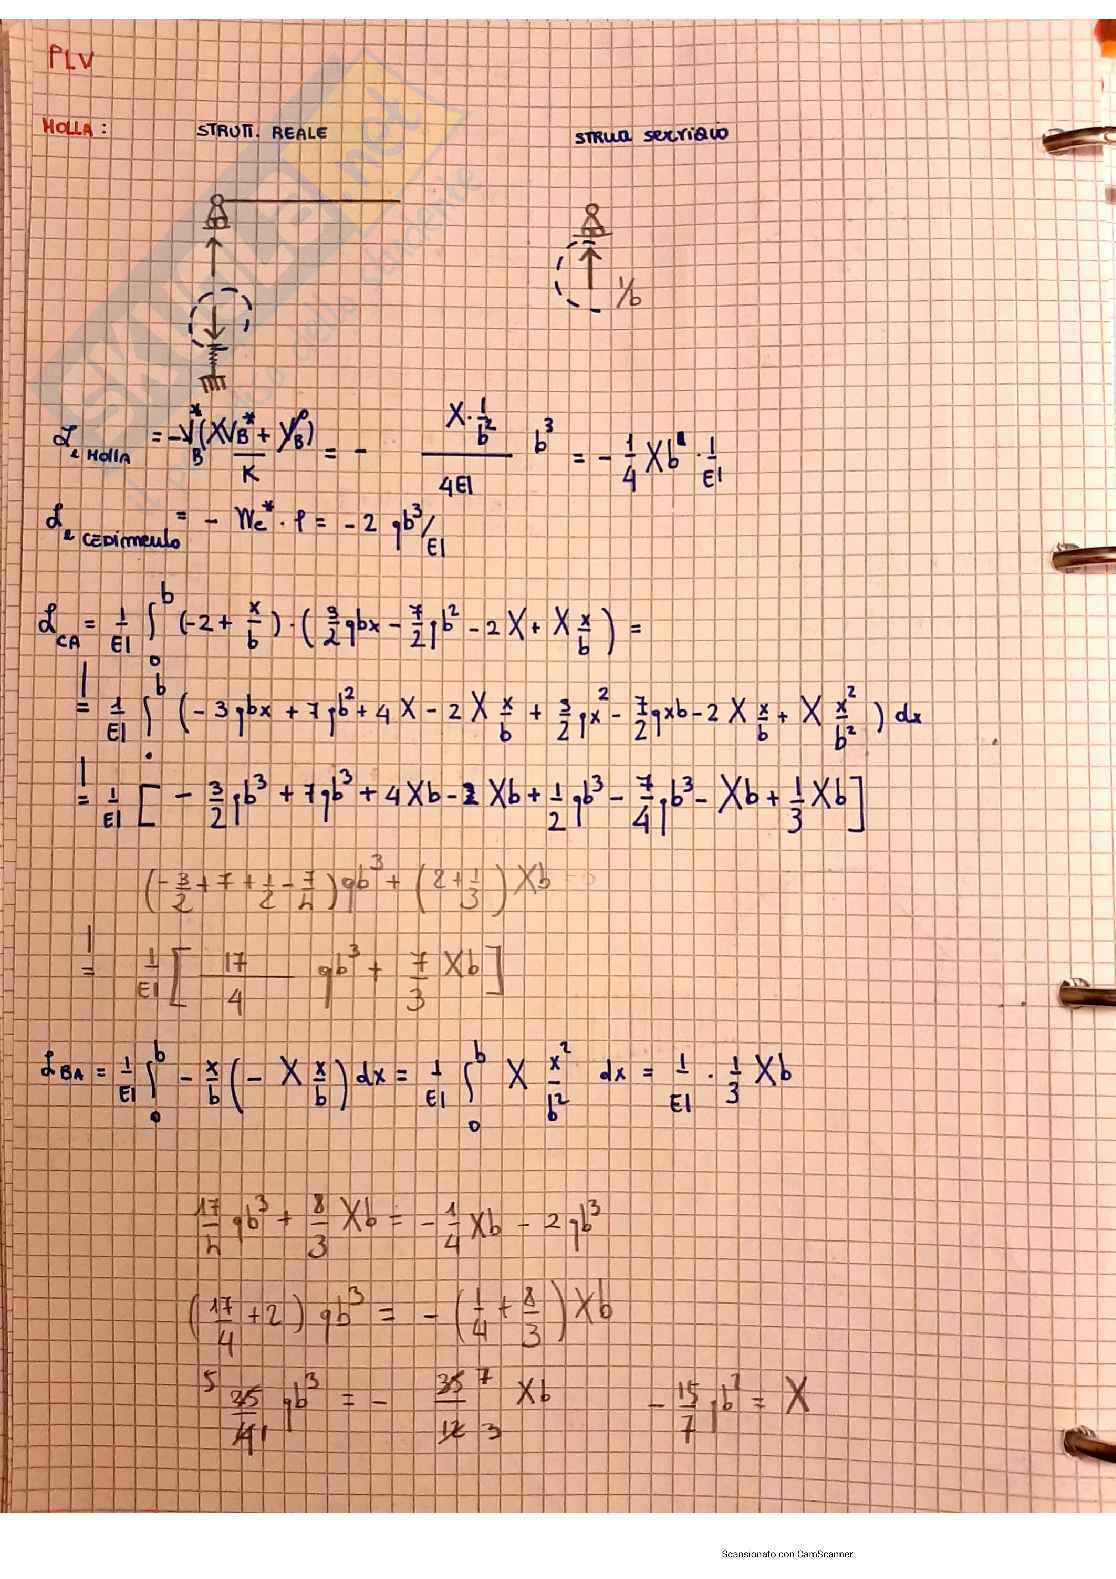 PLV
MOLLA: STRUTT. REALE
STRUA SERVIZIO
1/b
L e MOLLA = -V_B^* (X V_B^* + V_B^0)/K = - (X · 1/b²)/(4EI) b³ = - 1/4 Xb · 1/EI
L e CEDIMENTO = - Me^* · φ = - 2 qb³/EI
L CA = 1/EI ∫_0^b (-2 + x/b) · (3/2 qbx - 7/2 qb² - 2X + X x/b) =
= 1/EI ∫_0^b (-3qbx + 7qb² + 4X - 2X x/b + 3/2 qx² - 7/2 qxb - 2X x/b + X x²/b²) dx
= 1/EI [ - 3/2 qb³ + 7qb³ + 4Xb - 2 Xb + 1/2 qb³ - 7/4 qb³ - Xb + 1/3 Xb ]
(-3/2 + 7 + 1/2 - 7/4) qb³ + (2 + 1/3) Xb
= 1/EI [ 17/4 qb³ + 7/3 Xb ]
L BA = 1/EI ∫_0^b - x/b (- X x/b) dx = 1/EI ∫_0^b X x²/b² dx = 1/EI · 1/3 Xb
17/4 qb³ + 8/3 Xb = - 1/4 Xb - 2qb³
(17/4 + 2) qb³ = - (1/4 + 8/3) Xb
5 35/4 1 qb³ = - 35 7/12 3 Xb - 15/7 qb² = X
Scansionato con CamScanner